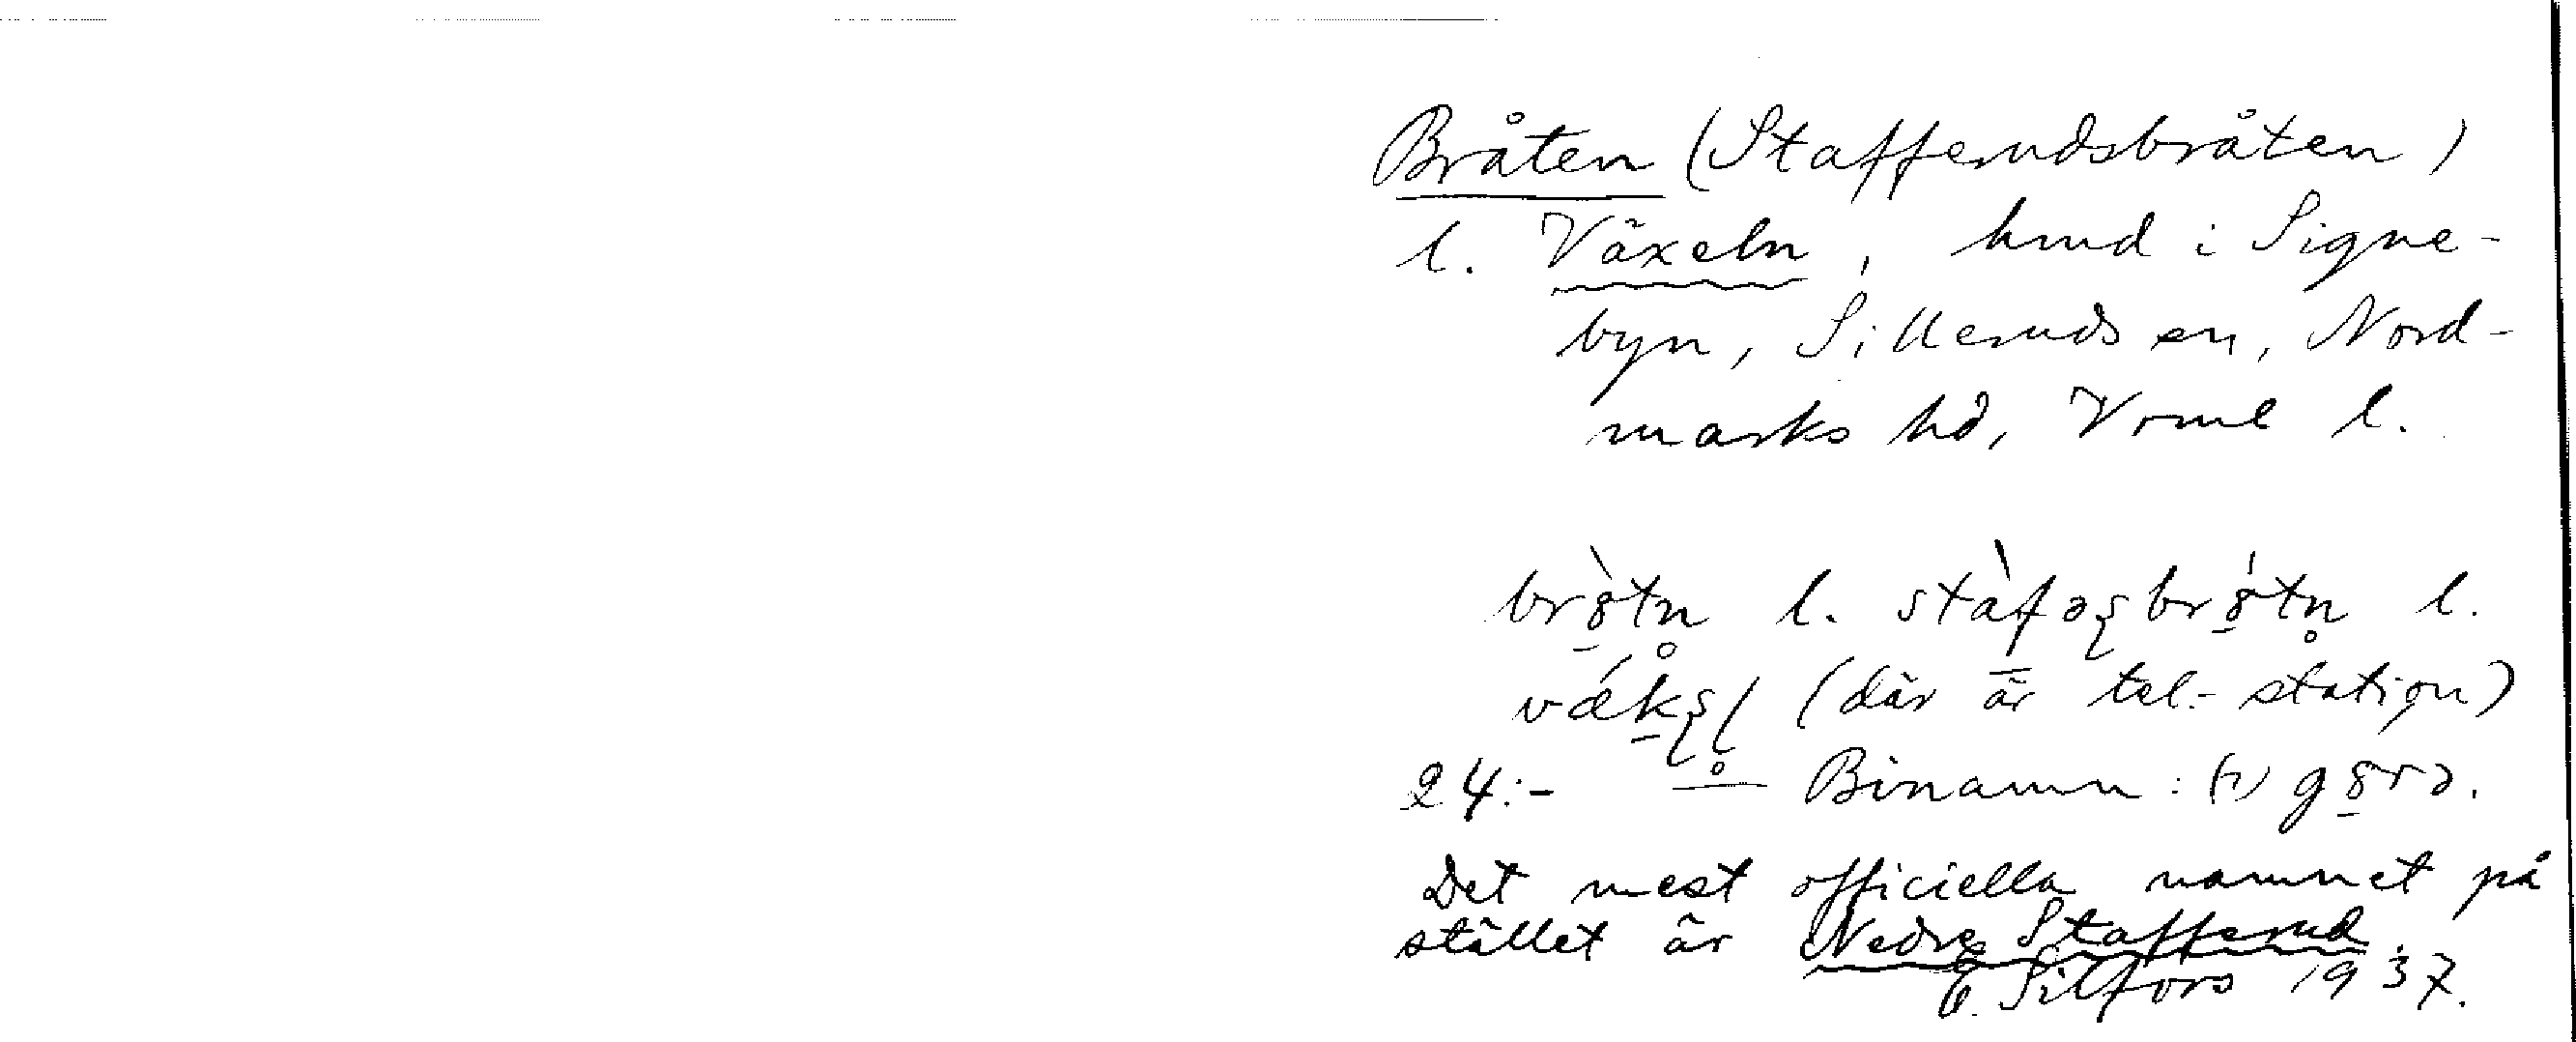 Bråten (Stafferudsbråten)
l. Växeln, hmd i Signe-
byn, Silleruds sn, Nord-
marks hd, Vrml l.
l. l.
(där är tel.-station)
24:- — Binamn:
Det mest officiella namnet på
stället är Nedre Stafferud.
E. Silfors 1937.